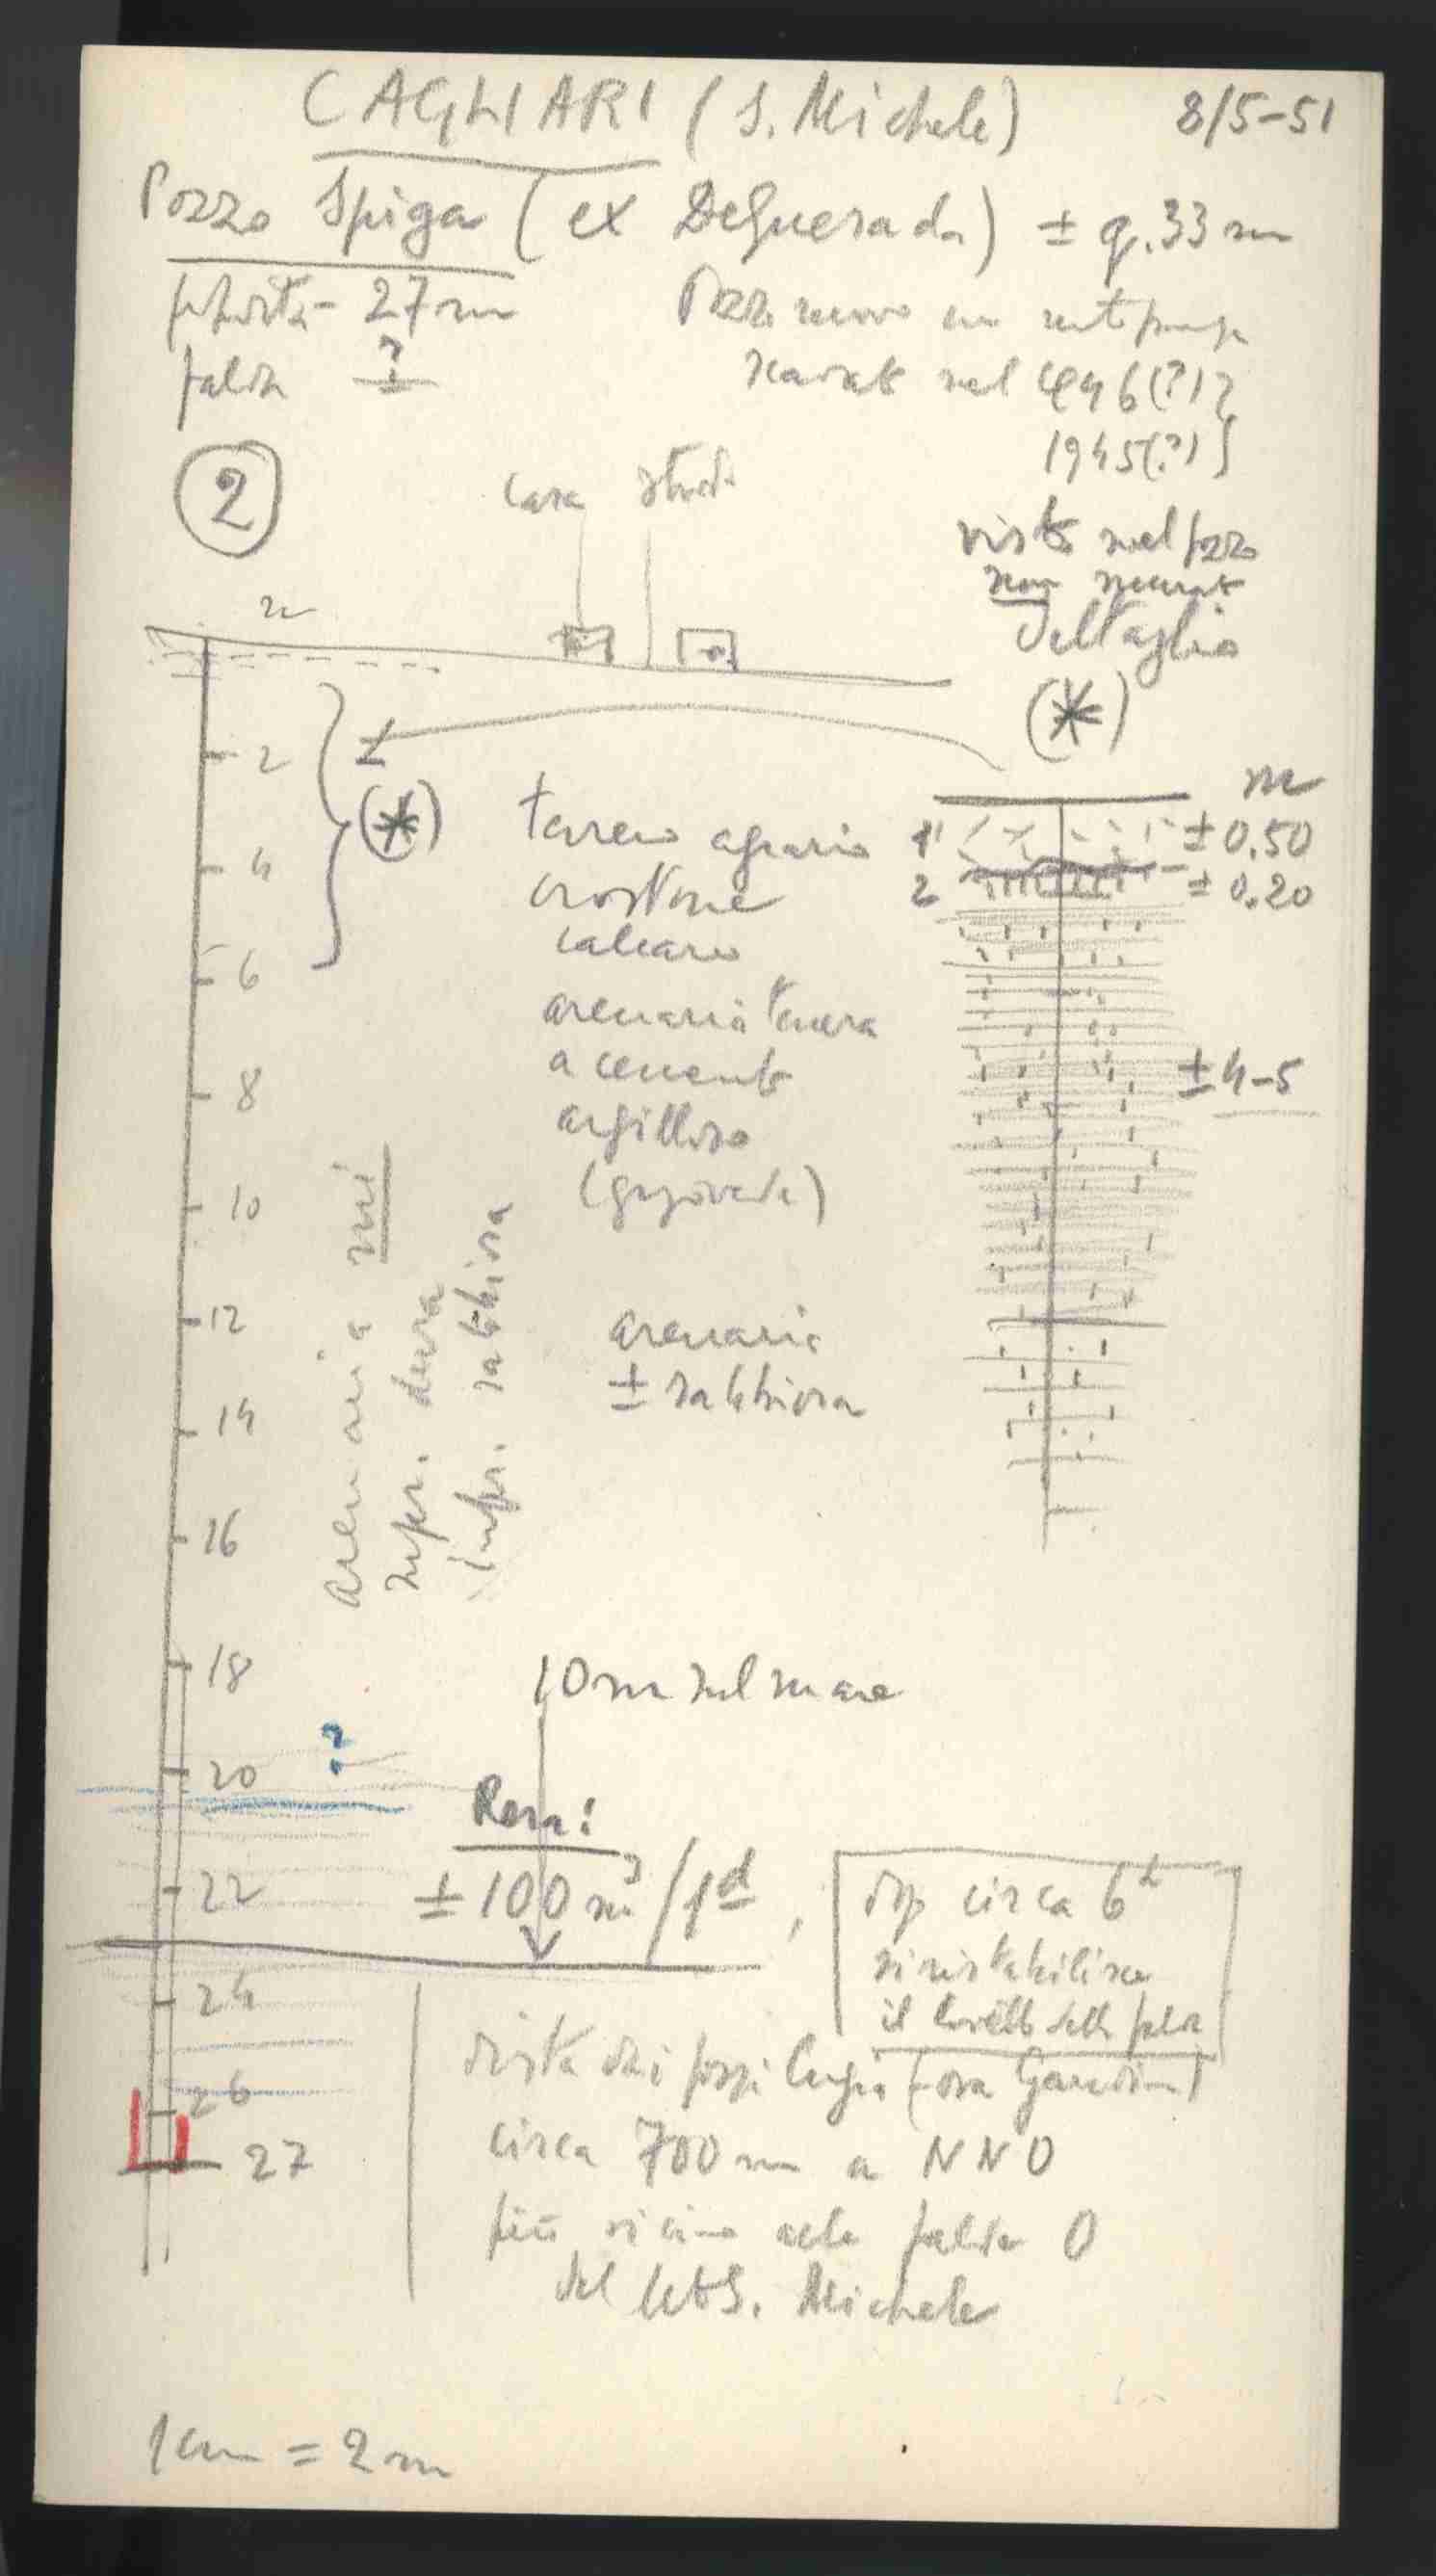 CAGLIARI (S. Michele) 8/5-51
Pozzo Spiga (ex Deguerada) ± q. 33 m
27 m
falda ?
±
Pozzo nuovo
scavato nel 1946(?)
1945(?)
2
casa strada
visto nel pozzo
non murato
Dettaglio
(*)
m
2
±
(*)
4
6
8
10
12
14
16
18
20 ?
22
24
26
27
terreno agrario 1 ± 0.50
crostone 2 ± 0.20
calcareo
arenaria tenera
a cemento
argilloso
± 4-5
arenaria
± sabbiosa
arenaria mi
supr. dura
infr. sabbiosa
10 m sul mare
Resa:
± 100 m³/1d,
dp circa 6h
si ristabilisce
il livello della falda
dista dai pozzi
circa 700 m a NNO
più vicino alla falda O
del S. Michele
1 cm = 2 m